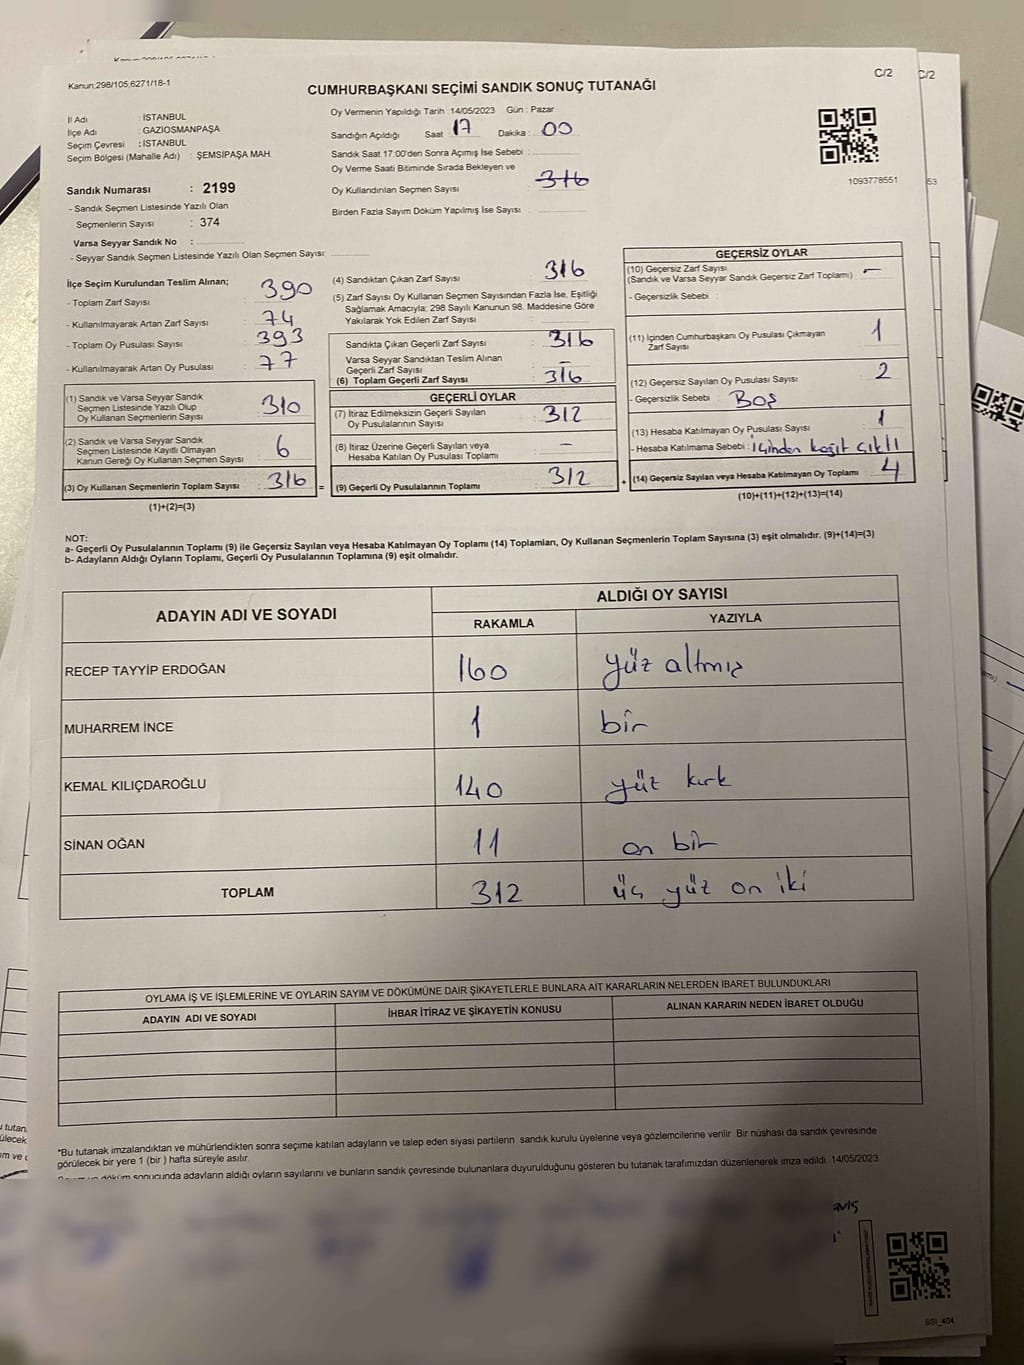 Kanun:298/105,6271/18-1
C/2
C/2
CUMHURBAŞKANI SEÇİMİ SANDIK SONUÇ TUTANAĞI
İl Adı : İSTANBUL
İlçe Adı : GAZİOSMANPAŞA
Seçim Çevresi : İSTANBUL
Seçim Bölgesi (Mahalle Adı) : ŞEMSİPAŞA MAH.
Sandık Numarası : 2199
- Sandık Seçmen Listesinde Yazılı Olan
Seçmenlerin Sayısı : 374
Varsa Seyyar Sandık No :
- Seyyar Sandık Seçmen Listesinde Yazılı Olan Seçmen Sayısı:
Oy Vermenin Yapıldığı Tarih :14/05/2023 Gün : Pazar
Sandığın Açıldığı Saat 17 Dakika : 00
Sandık Saat 17:00'den Sonra Açımış İse Sebebi :
Oy Verme Saati Bitiminde Sırada Bekleyen ve
Oy Kullandırılan Seçmen Sayısı : 316
Birden Fazla Sayım Döküm Yapılmış İse Sayısı :
1093778551
53
İlçe Seçim Kurulundan Teslim Alınan;
- Toplam Zarf Sayısı : 390
- Kullanılmayarak Artan Zarf Sayısı : 74
- Toplam Oy Pusulası Sayısı : 393
- Kullanılmayarak Artan Oy Pusulası : 77
(1) Sandık ve Varsa Seyyar Sandık
Seçmen Listesinde Yazılı Olup
Oy Kullanan Seçmenlerin Sayısı : 310
(2) Sandık ve Varsa Seyyar Sandık
Seçmen Listesinde Kayıtlı Olmayan
Kanun Gereği Oy Kullanan Seçmen Sayısı : 6
(3) Oy Kullanan Seçmenlerin Toplam Sayısı : 316 =
(1)+(2)=(3)
(4) Sandıktan Çıkan Zarf Sayısı : 316
(5) Zarf Sayısı Oy Kullanan Seçmen Sayısından Fazla İse, Eşitliği
Sağlamak Amacıyla; 298 Sayılı Kanunun 98. Maddesine Göre
Yakılarak Yok Edilen Zarf Sayısı :
Sandıkta Çıkan Geçerli Zarf Sayısı : 316
Varsa Seyyar Sandıktan Teslim Alınan
Geçerli Zarf Sayısı : -
(6) Toplam Geçerli Zarf Sayısı : 316
GEÇERLİ OYLAR
(7) İtiraz Edilmeksizin Geçerli Sayılan
Oy Pusulalarının Sayısı : 312
(8) İtiraz Üzerine Geçerli Sayılan veya
Hesaba Katılan Oy Pusulası Toplamı : -
(9) Geçerli Oy Pusulalarının Toplamı : 312 +
GEÇERSİZ OYLAR
(10) Geçersiz Zarf Sayısı
(Sandık ve Varsa Seyyar Sandık Geçersiz Zarf Toplamı) : -
- Geçersizlik Sebebi :
(11) İçinden Cumhurbaşkanı Oy Pusulası Çıkmayan
Zarf Sayısı : 1
(12) Geçersiz Sayılan Oy Pusulası Sayısı : 2
- Geçersizlik Sebebi : BOŞ
(13) Hesaba Katılmayan Oy Pusulası Sayısı : 1
- Hesaba Katılmama Sebebi : İçinden kağıt çıktı
(14) Geçersiz Sayılan veya Hesaba Katılmayan Oy Toplamı : 4
(10)+(11)+(12)+(13)=(14)
NOT:
a- Geçerli Oy Pusulalarının Toplamı (9) ile Geçersiz Sayılan veya Hesaba Katılmayan Oy Toplamı (14) Toplamları, Oy Kullanan Seçmenlerin Toplam Sayısına (3) eşit olmalıdır. (9)+(14)=(3)
b- Adayların Aldığı Oyların Toplamı, Geçerli Oy Pusulalarının Toplamına (9) eşit olmalıdır.
ADAYIN ADI VE SOYADI
ALDIĞI OY SAYISI
RAKAMLA YAZIYLA
RECEP TAYYİP ERDOĞAN 160 yüz altmış
MUHARREM İNCE 1 bir
KEMAL KILIÇDAROĞLU 140 yüz kırk
SİNAN OĞAN 11 on bir
TOPLAM 312 üç yüz on iki
OYLAMA İŞ VE İŞLEMLERİNE VE OYLARIN SAYIM VE DÖKÜMÜNE DAİR ŞİKAYETLERLE BUNLARA AİT KARARLARIN NELERDEN İBARET BULUNDUKLARI
ADAYIN ADI VE SOYADI İHBAR İTİRAZ VE ŞİKAYETİN KONUSU ALINAN KARARIN NEDEN İBARET OLDUĞU
*Bu tutanak imzalandıktan ve mühürlendikten sonra seçime katılan adayların ve talep eden siyasi partilerin sandık kurulu üyelerine veya gözlemcilerine verilir. Bir nüshası da sandık çevresinde
görülecek bir yere 1 (bir ) hafta süreyle asılır.
Sayım ve döküm sonucunda adayların aldığı oyların sayılarını ve bunların sandık çevresinde bulunanlara duyurulduğunu gösteren bu tutanak tarafımızdan düzenlenerek imza edildi. 14/05/2023
BSI_404